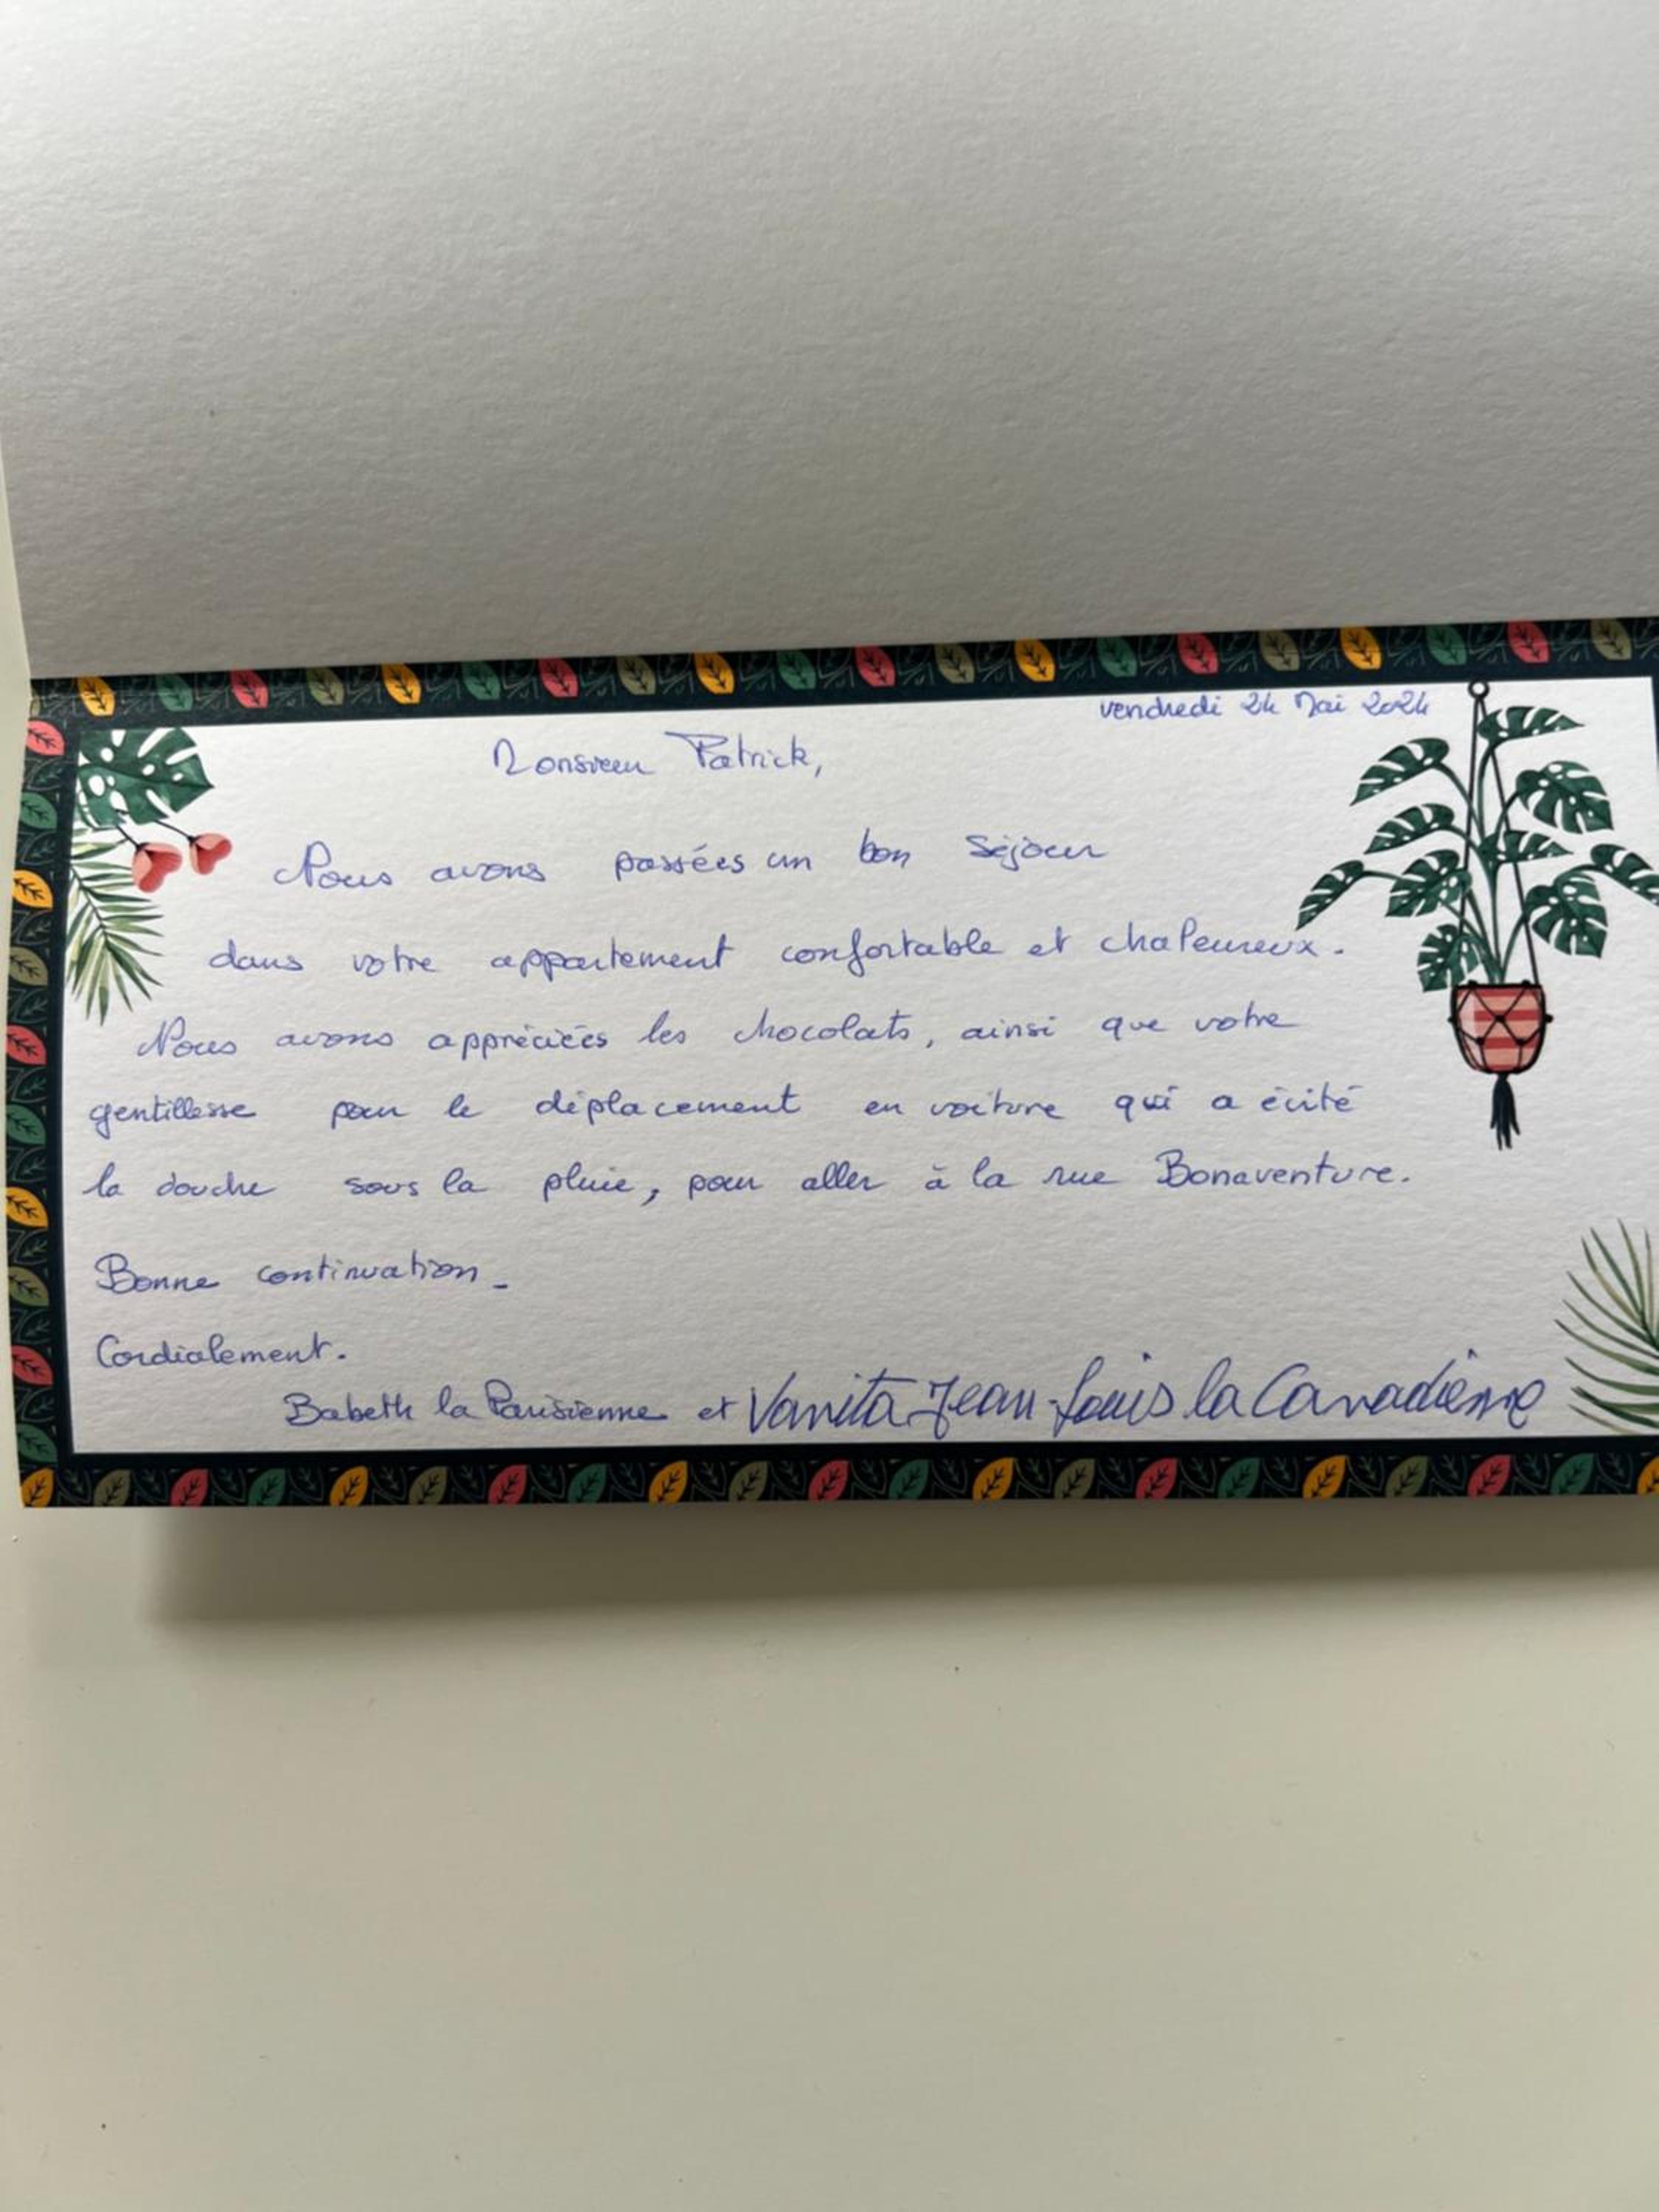 vendredi 24 Mai 2024
Monsieur Patrick,
Nous avons passées un bon séjour
dans votre appartement confortable et chaleureux.
Nous avons appréciées les chocolats, ainsi que votre
gentillesse pour le déplacement en voiture qui a évité
la douche sous la pluie, pour aller à la rue Bonaventure.
Bonne continuation_
Cordialement.
Babeth la Parisienne et Vanita Jean-Louis la Canadienne